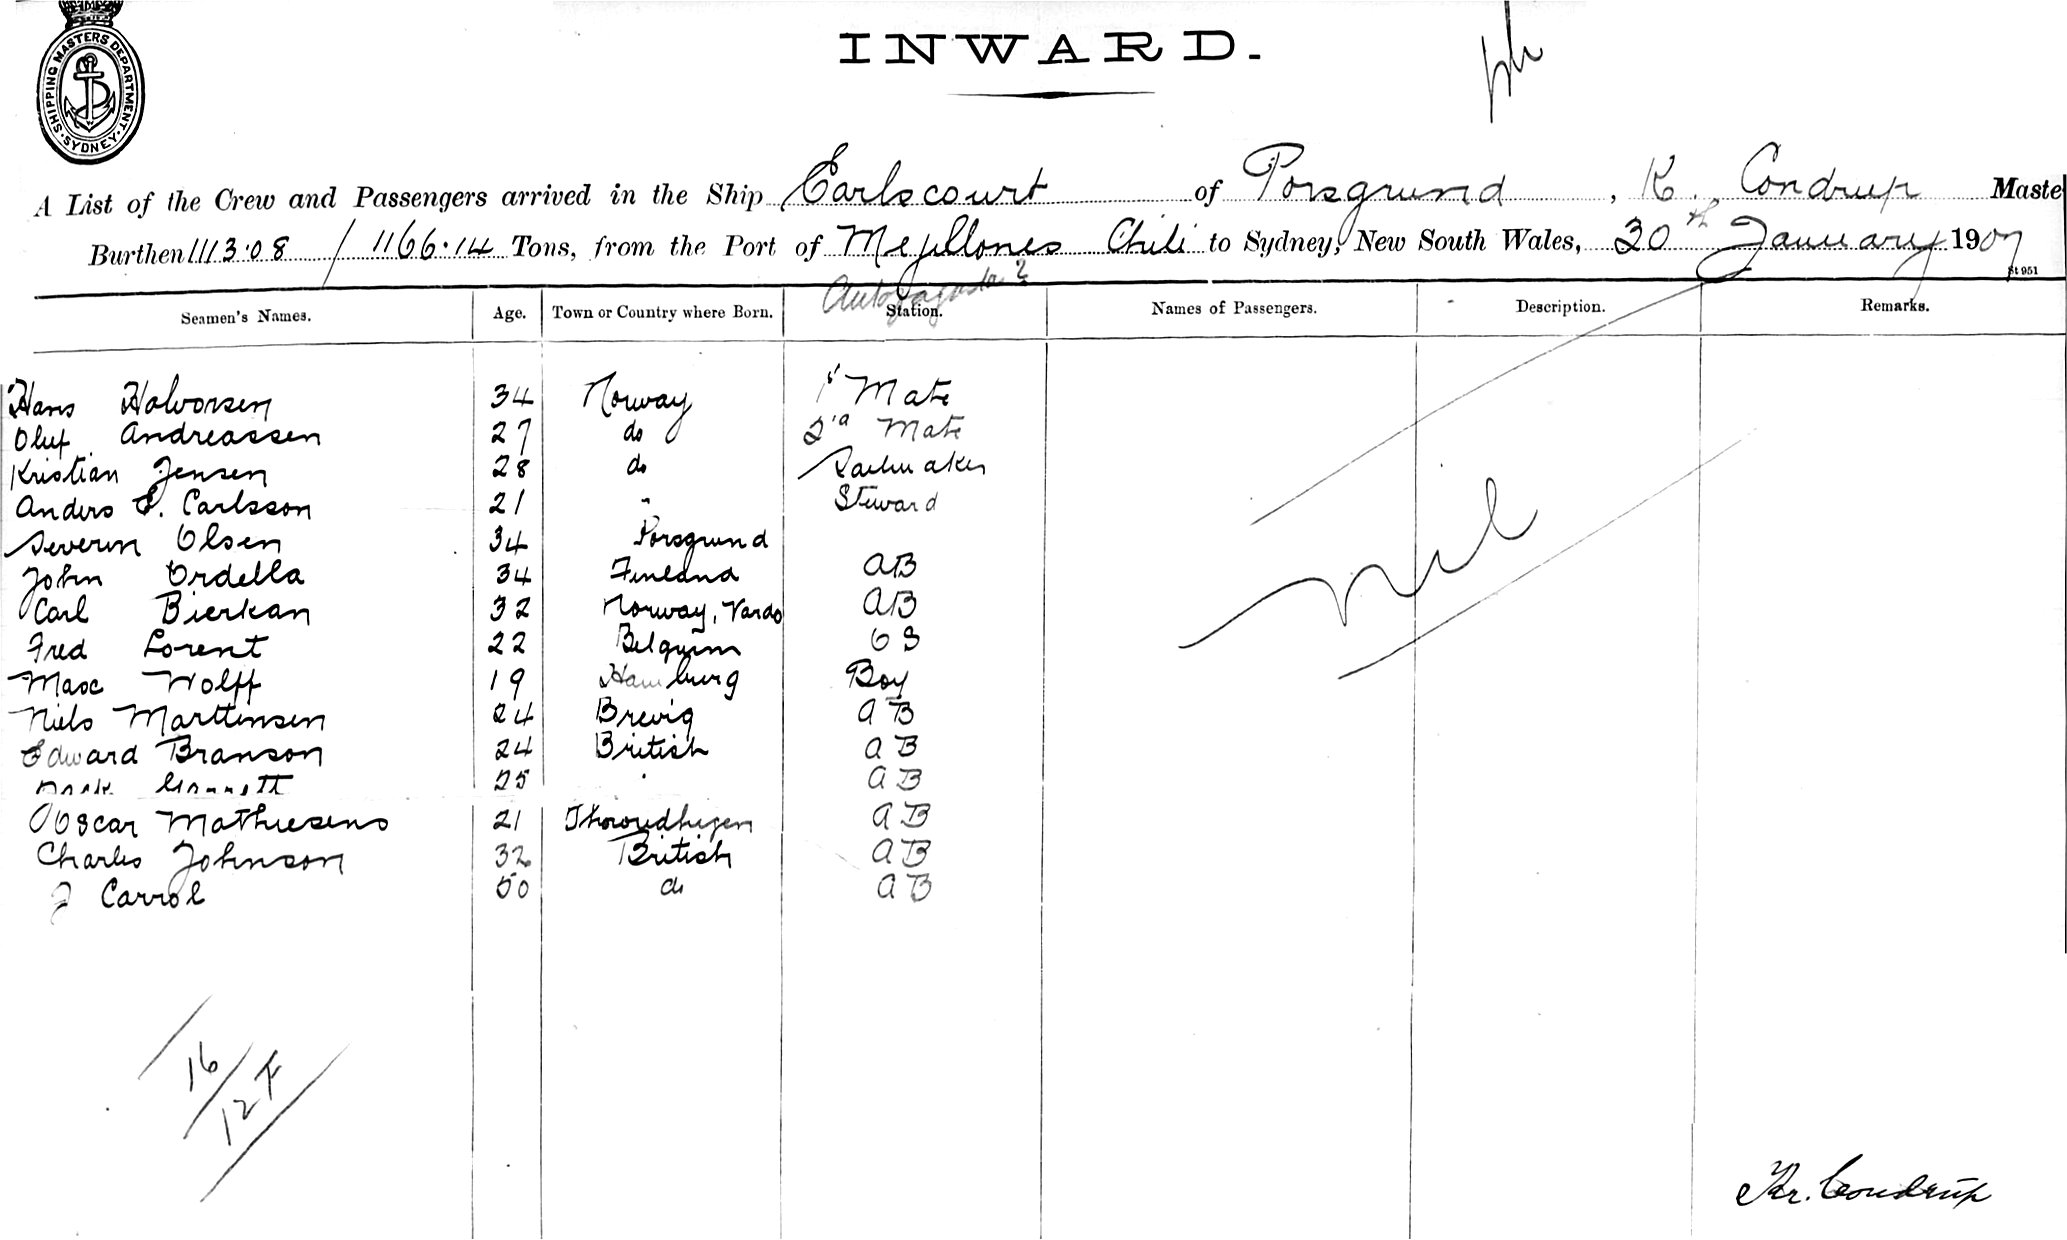 SHIPPING MASTERS DEPARTMENT. SYDNEY.
INWARD.
A List of the Crew and Passengers arrived in the Ship Earlscourt of Porsgrund, K. Condrup Maste
Burthen 1113.08 / 1166.14 Tons, from the Port of Mejillones Chili to Sydney, New South Wales, 30th January 1907
St 951
Antofagasta ?
Seamen's Names. Age. Town or Country where Born. Station. Names of Passengers. Description. Remarks.
Hans Halvorsen 34 Norway 1st Mate
Oluf Andreassen 27 do 2nd Mate
Kristian Jensen 28 do Sailmaker
Anders E. Carlsson 21 " Steward
Severin Olsen 34 Porsgrund
John Ordella 34 Finland AB
Carl Bierkan 32 Norway, Vardo AB
Fred Lorent 22 Belguim OS
Max Wolff 19 Hamburg Boy
Niels Marttinsen 24 Brevig AB
Edward Branson 24 British AB
25 AB
Oscar Mathiesens 21 AB
Charles Johnson 32 British AB
J Carrol 50 do AB
nil
16
12 F
Kr. Condrup